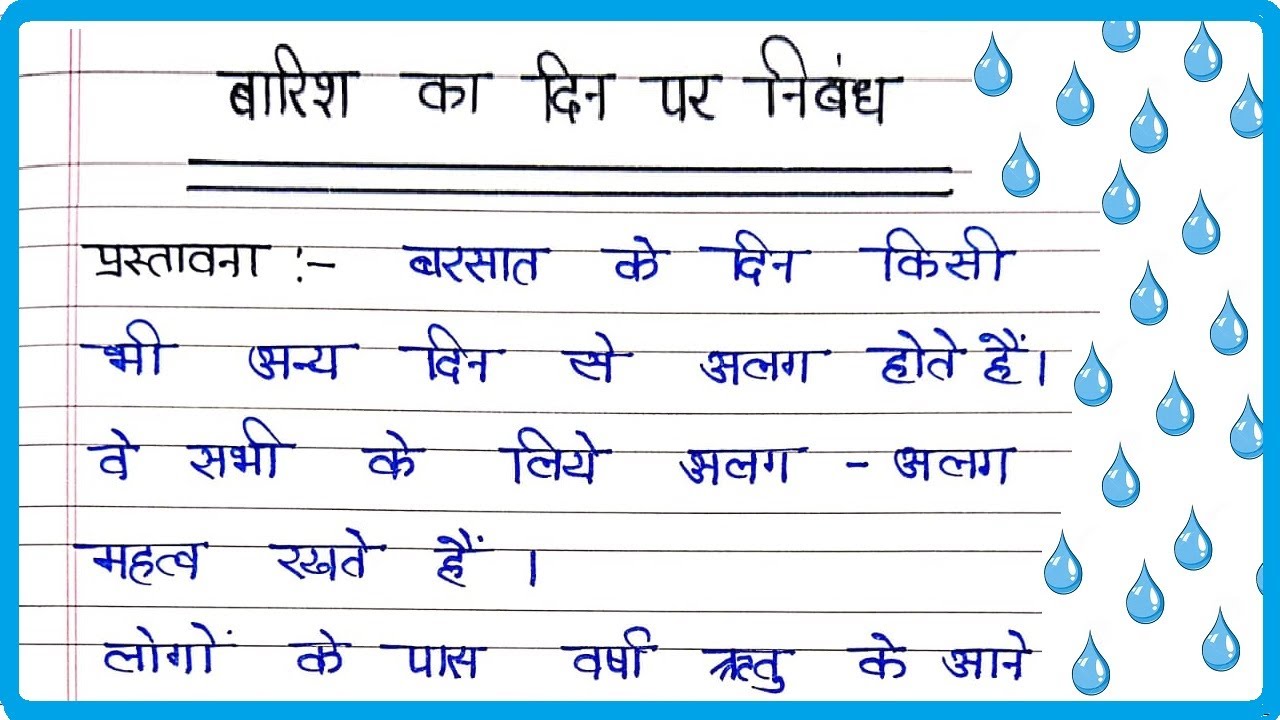 बारिश का दिन पर निबंध
प्रस्तावना :- बरसात के दिन किसी
भी अन्य दिन से अलग होते हैं।
वे सभी के लिये अलग - अलग
महत्व रखते हैं ।
लोगों के पास वर्षा ऋतु के आने